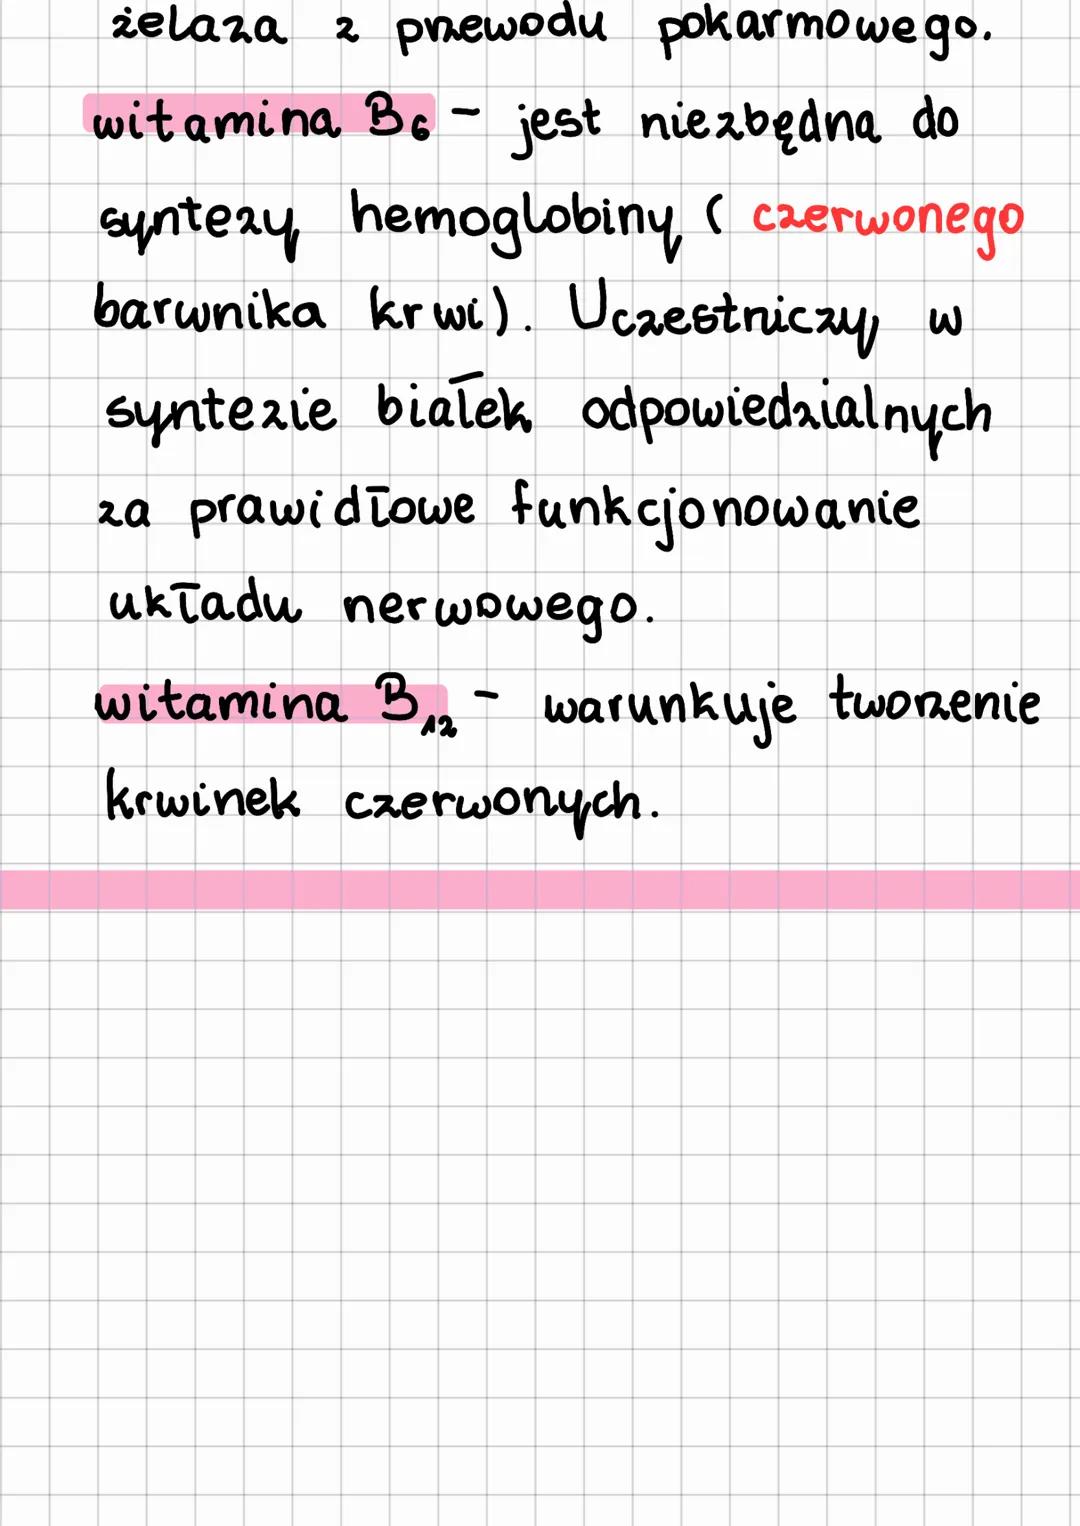 żelaza z przewodu pokarmowego.
witamina B₆ - jest niezbędna do
syntezy hemoglobiny ( czerwonego
barwnika krwi). Uczestniczy w
syntezie białek odpowiedzialnych
za prawidłowe funkcjonowanie
układu nerwowego.
witamina B₁₂ - warunkuje tworzenie
krwinek czerwonych.